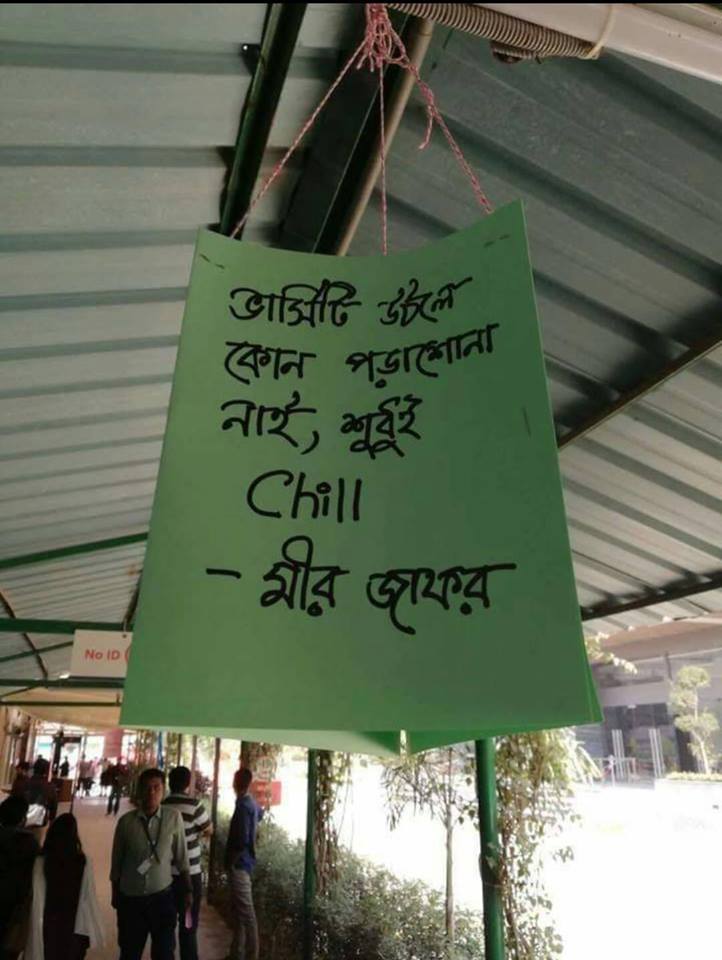 ভার্সিটি উঠলে
কোন পড়াশোনা
নাই, শুধুই
Chill
- মীর জাফর
No ID